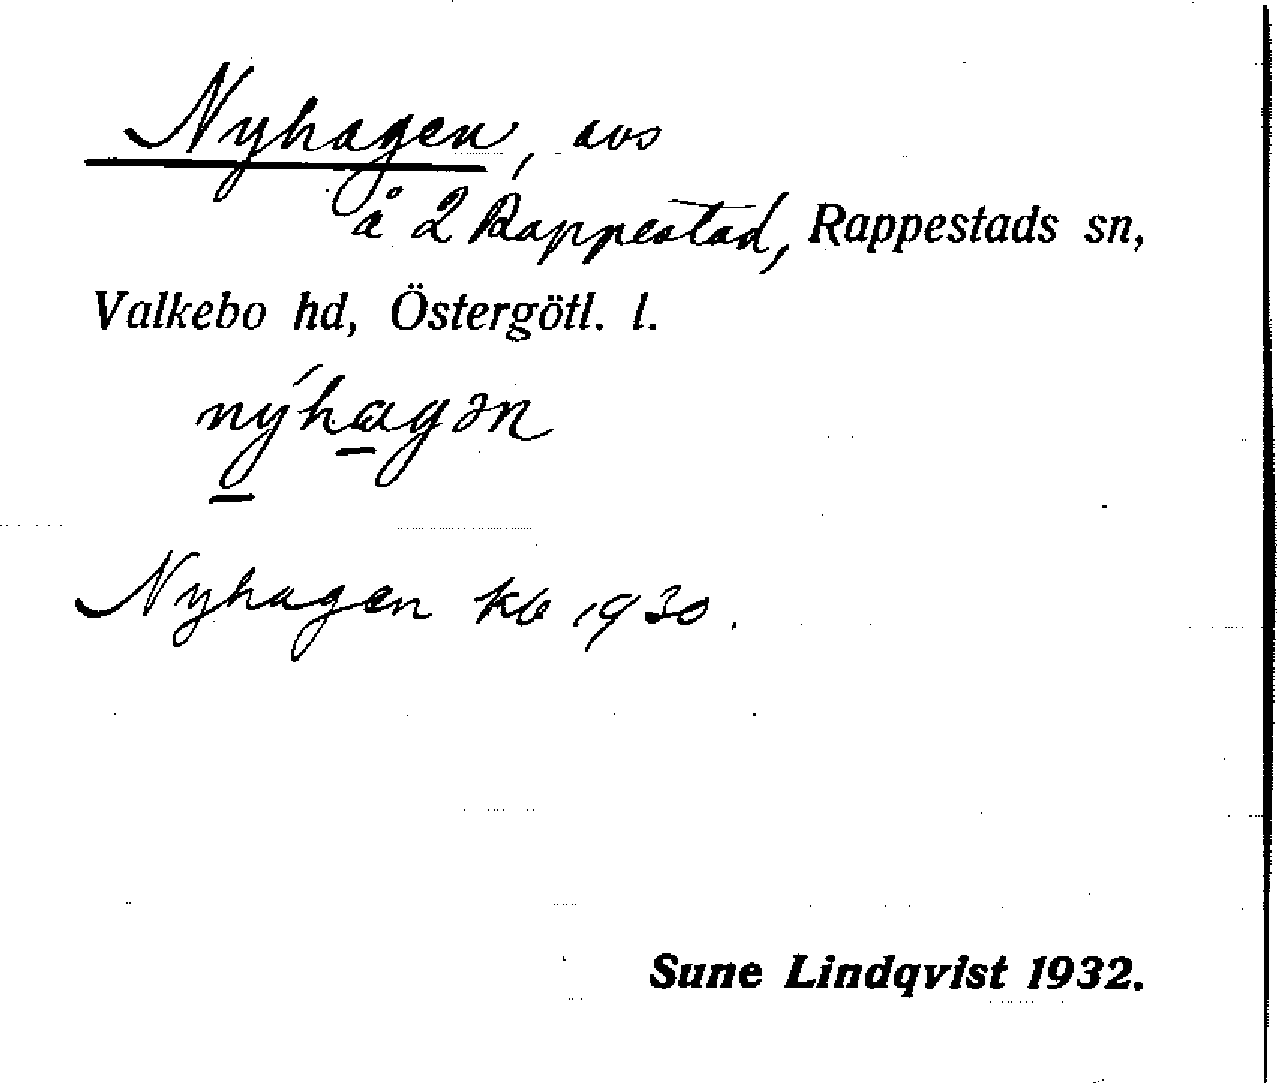 Nyhagen, avs
å 2 Rappestad, Rappestads sn,
Valkebo hd, Östergötl. l.
nýhagən
Nyhagen kb 1930.
Sune Lindqvist 1932.